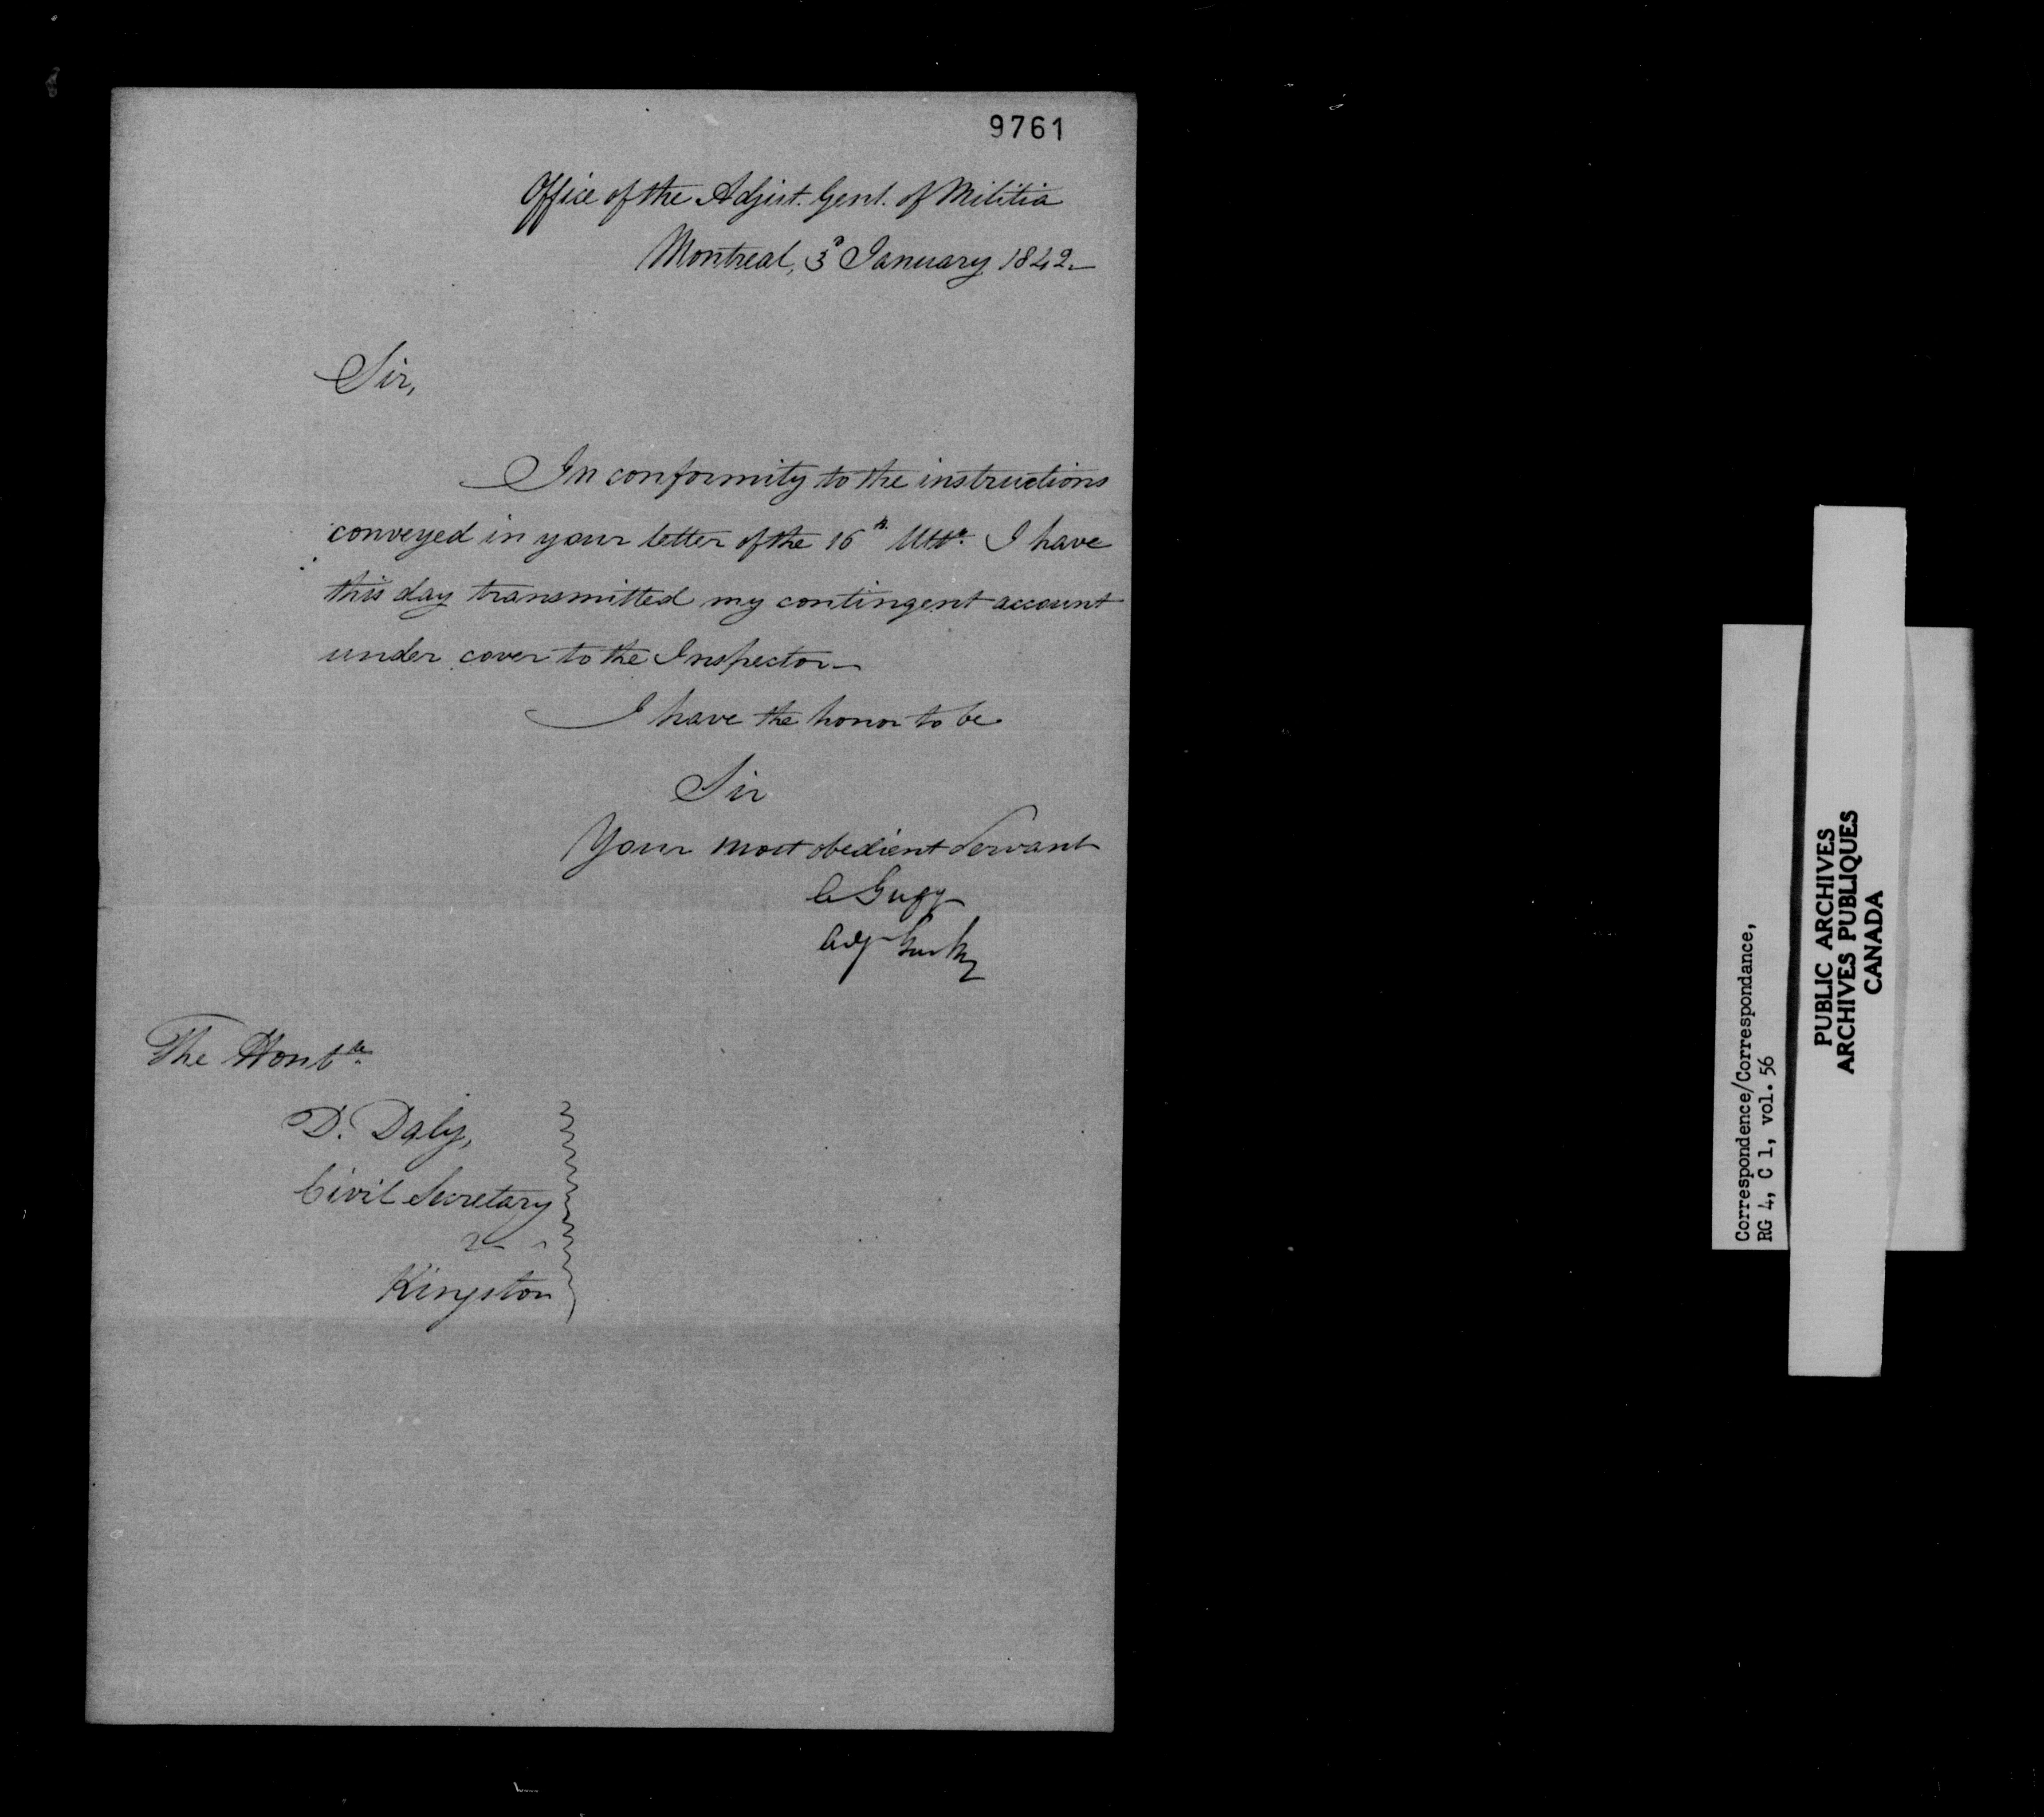 9761
Office of the Adjut. Genl. of Militia
Montreal, 3d January 1842.—
Sir,
In conformity to the instructions
conveyed in your letter of the 16th Ulto. I have
this day transmitted my contingent account
under cover to the Inspector—
I have the honor to be
Sir
Your most obedient Servant
A Gugy
Adj Gen M
The Honble.
D. Daly,
Civil Secretary
Kingston
Correspondence/Correspondance,
RG 4, C 1, vol. 56
PUBLIC ARCHIVES
ARCHIVES PUBLIQUES
CANADA